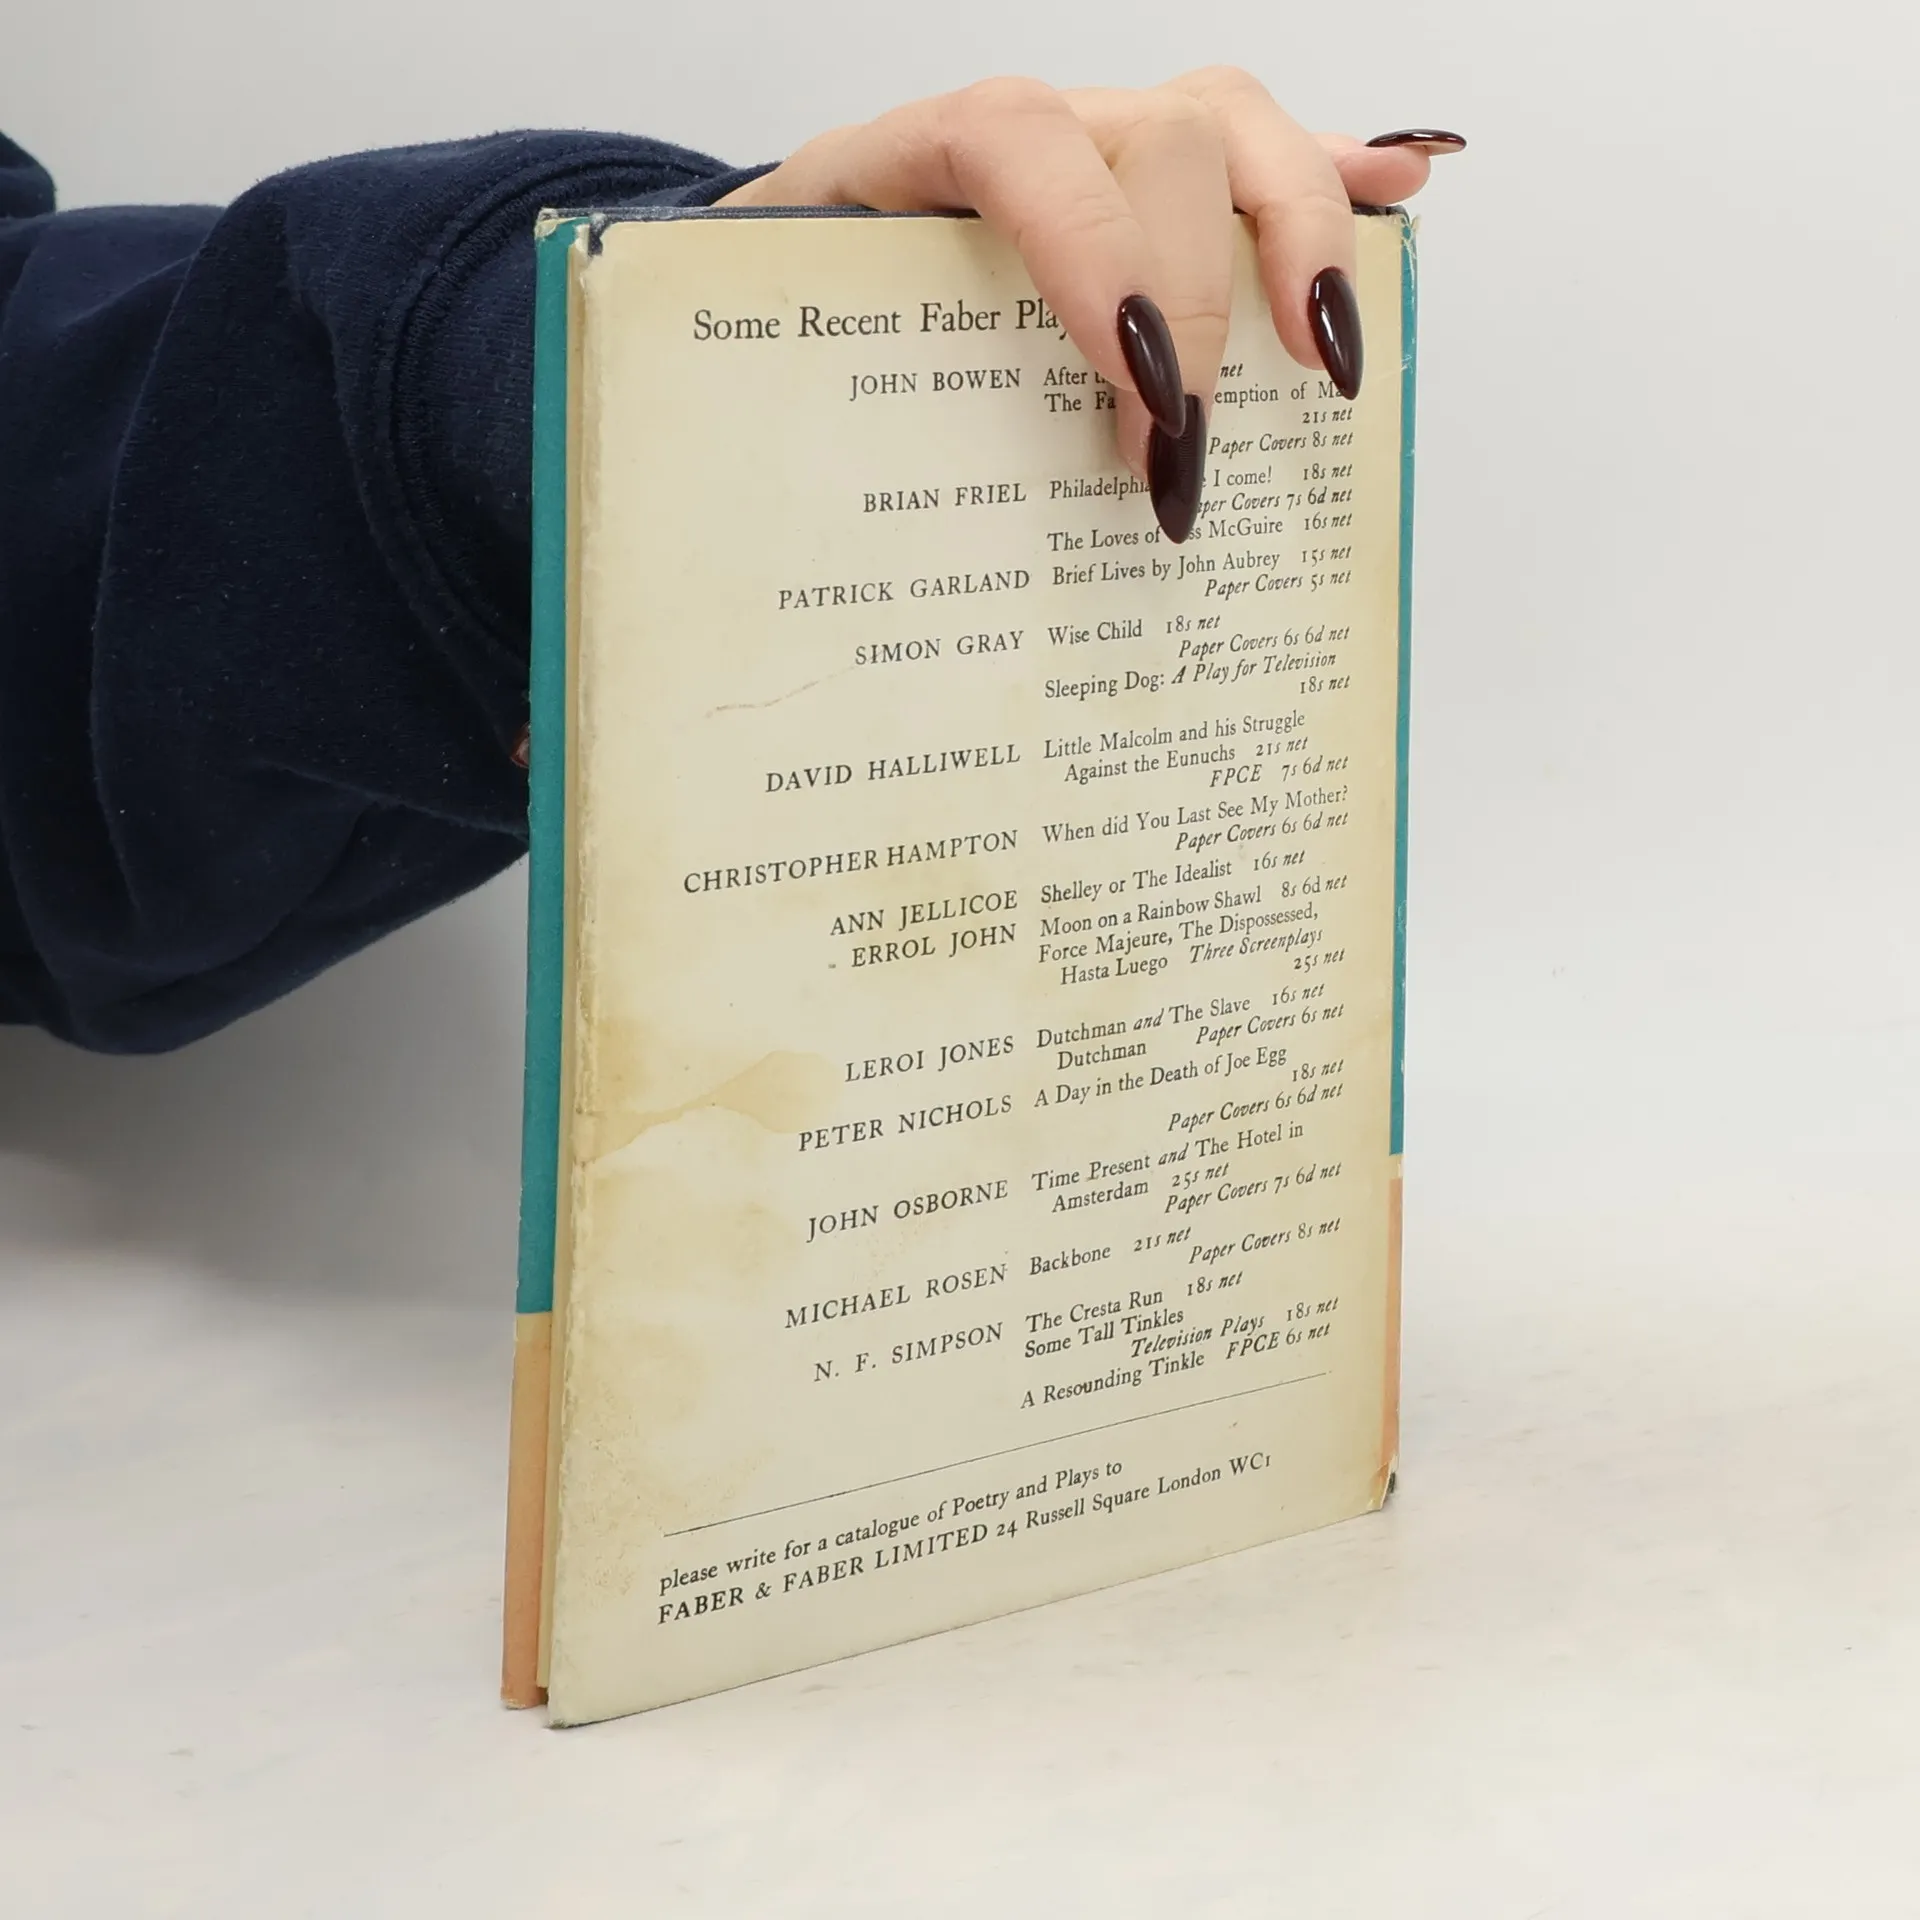 Some Recent Faber
JOHN BOWEN After net
The emption of
21s net
Paper Covers 8s net
BRIAN FRIEL I come! 18s net
Covers 7s 6d net
The Loves of McGuire 16s net
PATRICK GARLAND Brief Lives by John Aubrey 15s net
Paper Covers 5s net
SIMON GRAY Wise Child 18s net
Paper Covers 6s 6d net
Sleeping Dog: A Play for Television
18s net
DAVID HALLIWELL Little Malcolm and his Struggle
Against the Eunuchs 21s net
FPCE 7s 6d net
CHRISTOPHER HAMPTON When did You Last See My Mother?
Paper Covers 6s 6d net
ANN JELLICOE Shelley or The Idealist 16s net
ERROL JOHN Moon on a Rainbow Shawl 8s 6d net
Force Majeure, The Dispossessed,
Hasta Luego Three Screenplays
25s net
LEROI JONES Dutchman and The Slave 16s net
Dutchman Paper Covers 6s net
PETER NICHOLS A Day in the Death of Joe Egg
18s net
Paper Covers 6s 6d net
JOHN OSBORNE Time Present and The Hotel in
Amsterdam 25s net
Paper Covers 7s 6d net
MICHAEL ROSEN Backbone 21s net
Paper Covers 8s net
N. F. SIMPSON The Cresta Run 18s net
Some Tall Tinkles
Television Plays 18s net
A Resounding Tinkle FPCE 6s net
please write for a catalogue of Poetry and Plays to
FABER & FABER LIMITED 24 Russell Square London WC1